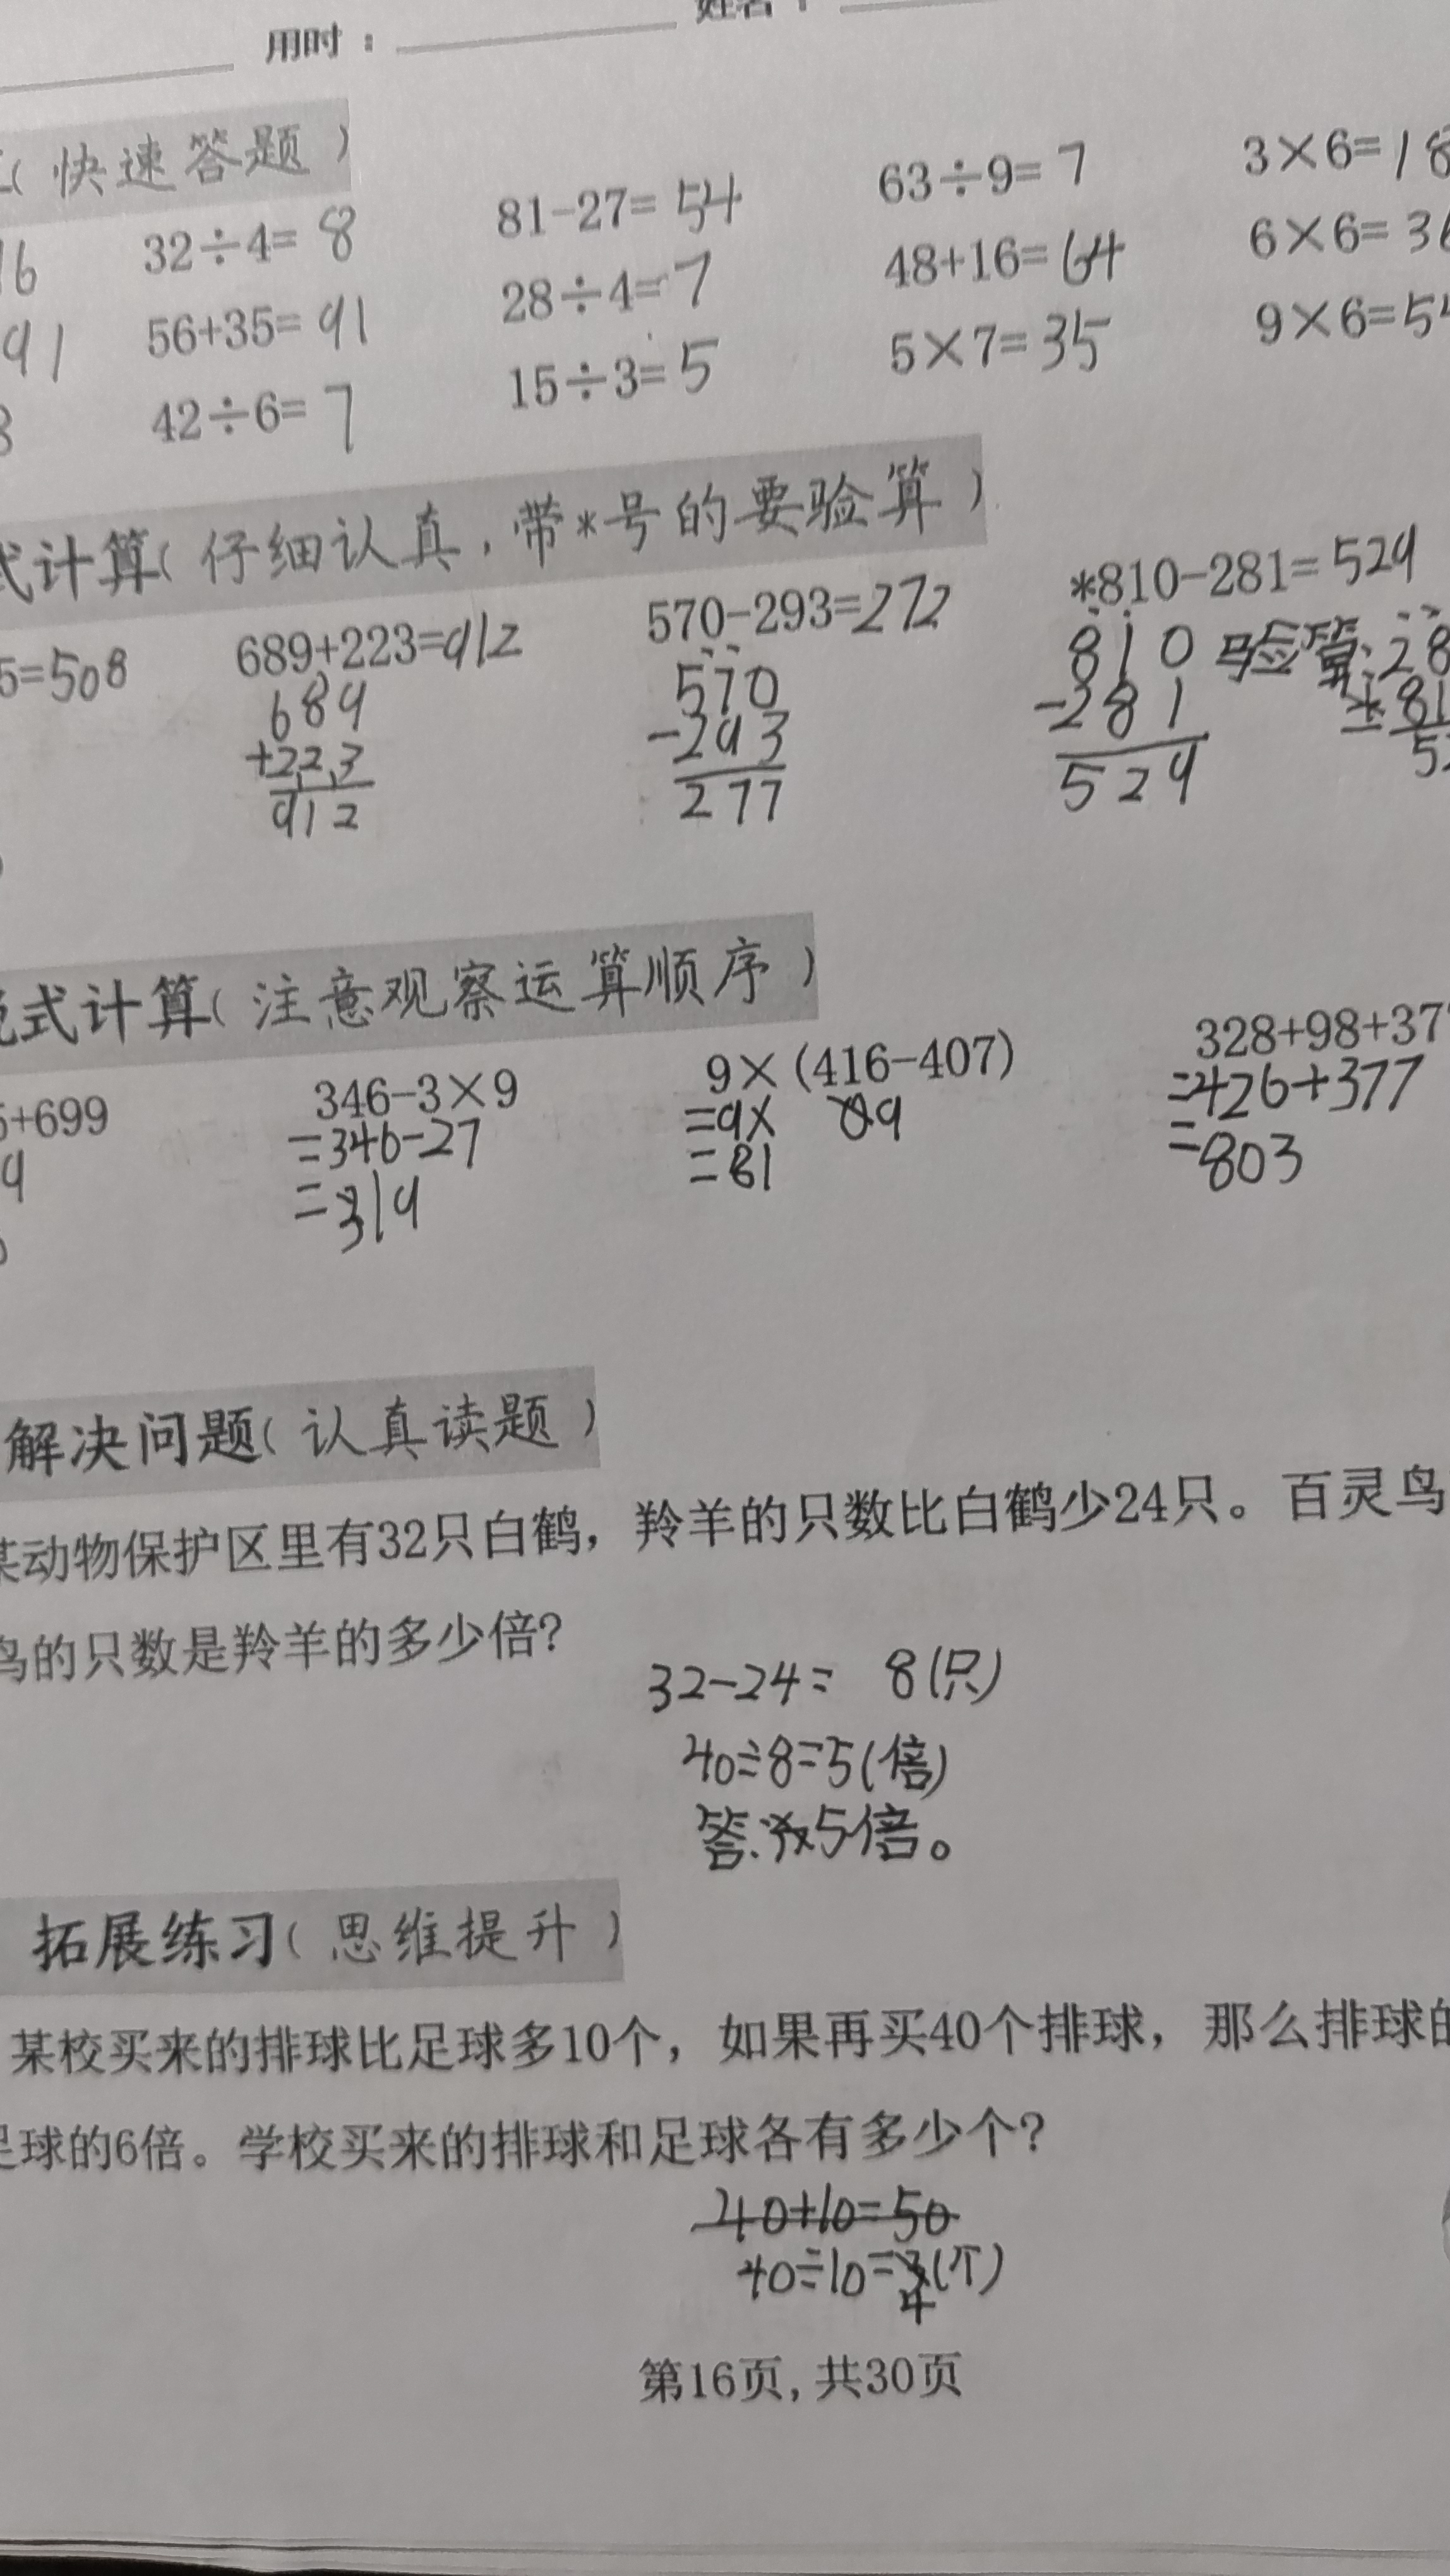 用时：
（快速答题）
16 32÷4=8 81-27=54 63÷9=7 3×6=18
91 56+35=91 28÷4=7 48+16=64 6×6=36
42÷6=7 15÷3=5 5×7=35 9×6=54
式计算（仔细认真，带*号的要验算）
5=508 689+223=912 570-293=272 *810-281=529
689 570 810 验算:28
+223 -293 -281 +81
912 277 529 5
式计算（注意观察运算顺序）
+699 346-3×9 9×(416-407) 328+98+377
9 =346-27 =9× 9 =426+377
=319 =81 =803
解决问题（认真读题）
某动物保护区里有32只白鹤，羚羊的只数比白鹤少24只。百灵鸟
鸟的只数是羚羊的多少倍？
32-24= 8(只)
40÷8=5(倍)
答:5倍。
拓展练习（思维提升）
某校买来的排球比足球多10个，如果再买40个排球，那么排球的
足球的6倍。学校买来的排球和足球各有多少个？
40+10=50
40÷10=4(个)
第16页，共30页